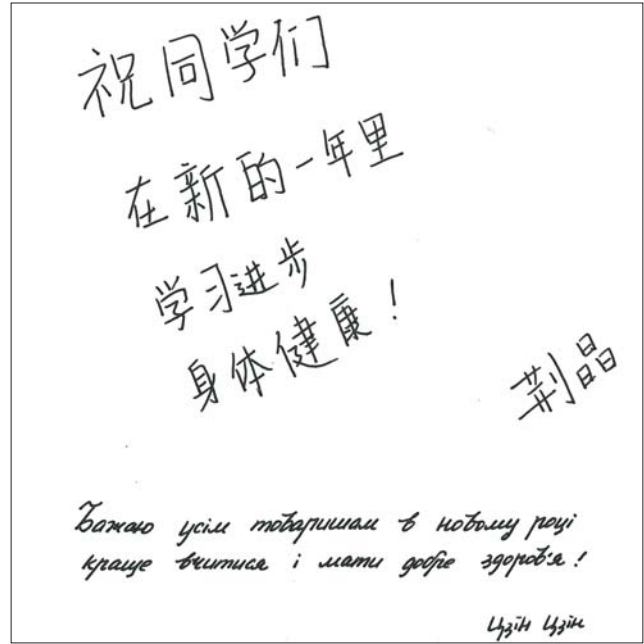 祝同学们
在新的一年里
学习进步
身体健康！
荆晶
Бажаю усім товаришам в новому році
краще вчитися і мати добре здоров'я!
Цзін Цзін